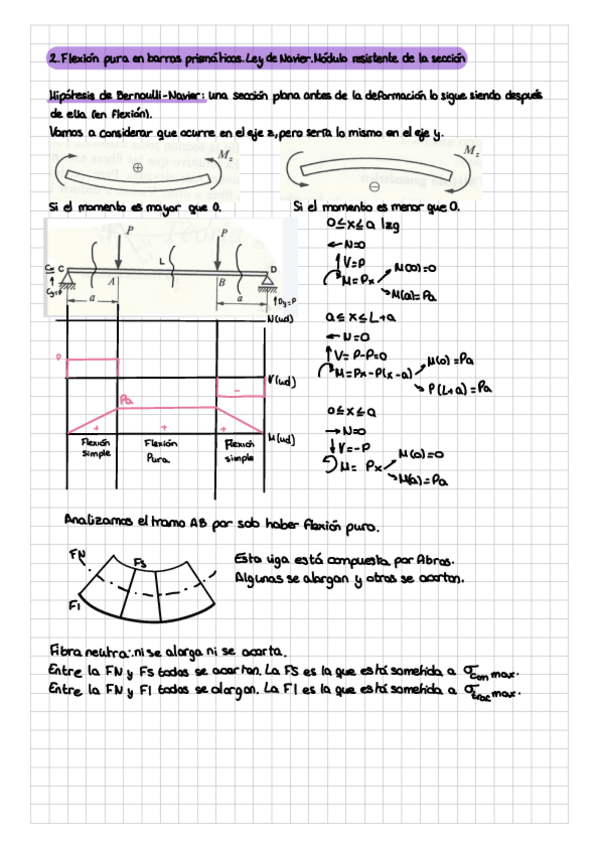 2. Flexión pura en barras prismáticas. Ley de Navier. Módulo resistente de la sección
Hipótesis de Bernoulli-Navier: una sección plana antes de la deformación lo sigue siendo después
de ella (en flexión).
Vamos a considerar que ocurre en el eje z, pero sería lo mismo en el eje y.
M_z
⊕
M_z
⊖
Si el momento es mayor que 0.
Si el momento es menor que 0.
P
P
L
Cx C
D
Cy=P
A
B
Dy=P
a
a
N(ud)
P
-
V(ud)
Pa
+
+
+
M(ud)
Flexión simple
Flexión Pura
Flexión simple
0≤x≤a izq
N=0
V=P
M=Px
M(0)=0
M(a)=Pa
a≤x≤L+a
N=0
V=P-P=0
M=Px-P(x-a)
M(a)=Pa
P(L+a)=Pa
0≤x≤a
N=0
V=-P
M=Px
M(0)=0
M(a)=Pa
Analizamos el tramo AB por solo haber flexión pura.
FN
FS
FI
Esta viga está compuesta por fibras.
Algunas se alargan y otras se acortan.
Fibra neutra: ni se alarga ni se acorta.
Entre la FN y FS todas se acortan. La FS es la que está sometida a σcom max.
Entre la FN y FI todas se alargan. La FI es la que está sometida a σtrac max.